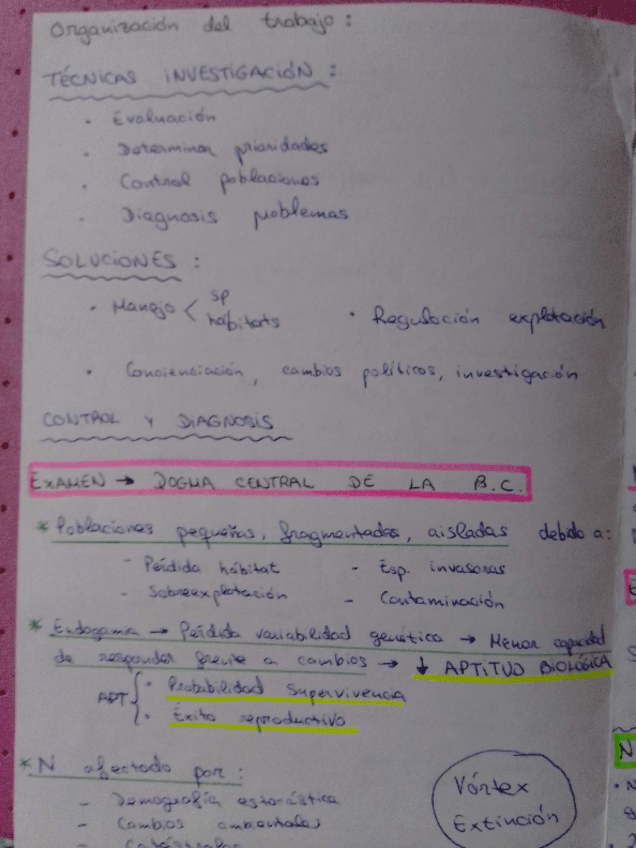 Organización del trabajo:
TÉCNICAS INVESTIGACIÓN:
· Evaluación
· Determinar prioridades
· Control poblaciones
· Diagnosis problemas
SOLUCIONES:
· Manejo < sp
hábitats
· Regulación explotación
· Concienciación, cambios políticos, investigación
CONTROL Y DIAGNOSIS
EXAMEN → DOGMA CENTRAL DE LA B.C.
* Poblaciones pequeñas, fragmentadas, aisladas debido a:
- Pérdida hábitat - Esp. invasoras
- Sobreexplotación - Contaminación
* Endogamia → Pérdida variabilidad genética → Menor capacidad
de responder frente a cambios → ↓ APTITUD BIOLÓGICA
APT { · Probabilidad Supervivencia
· Éxito reproductivo
* N afectado por:
- Demografía estocástica
- Cambios ambientales
- Catástrofes
Vórtex
Extinción
N